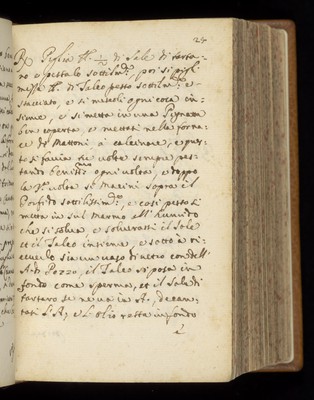 25
℞ Piglia ℔. 1/2 di Sale di tarta-
ro e pestalo sottilm.te, poi si pigli
mezza ℔. di Talco pesto sottilm.te e
stacciato, e si mescoli ogni cosa in-
sieme, e si metta in una Pignatta
ben coperta, e mettasi nella forna-
ce de Mattoni à calcinare, e ques-
to si faccia tre volte sempre pes-
tando beniss.mo ogni volta, e doppo
la 3.a volta si Macini sopra il
Porfido sottilissim.te, e così pesto si
metta in sul Marmo all'humido
che si solva, e solverassi il Sale
et il Talco insieme, e sotto à ri-
ceverlo sia un vaso di vetro con dell'
A. di Pozzo, il Talco si posa in
fondo come sperma, et il Sale di
tartaro se ne va in A., decan-
tasi l'A., e l'olio resta in fondo
è